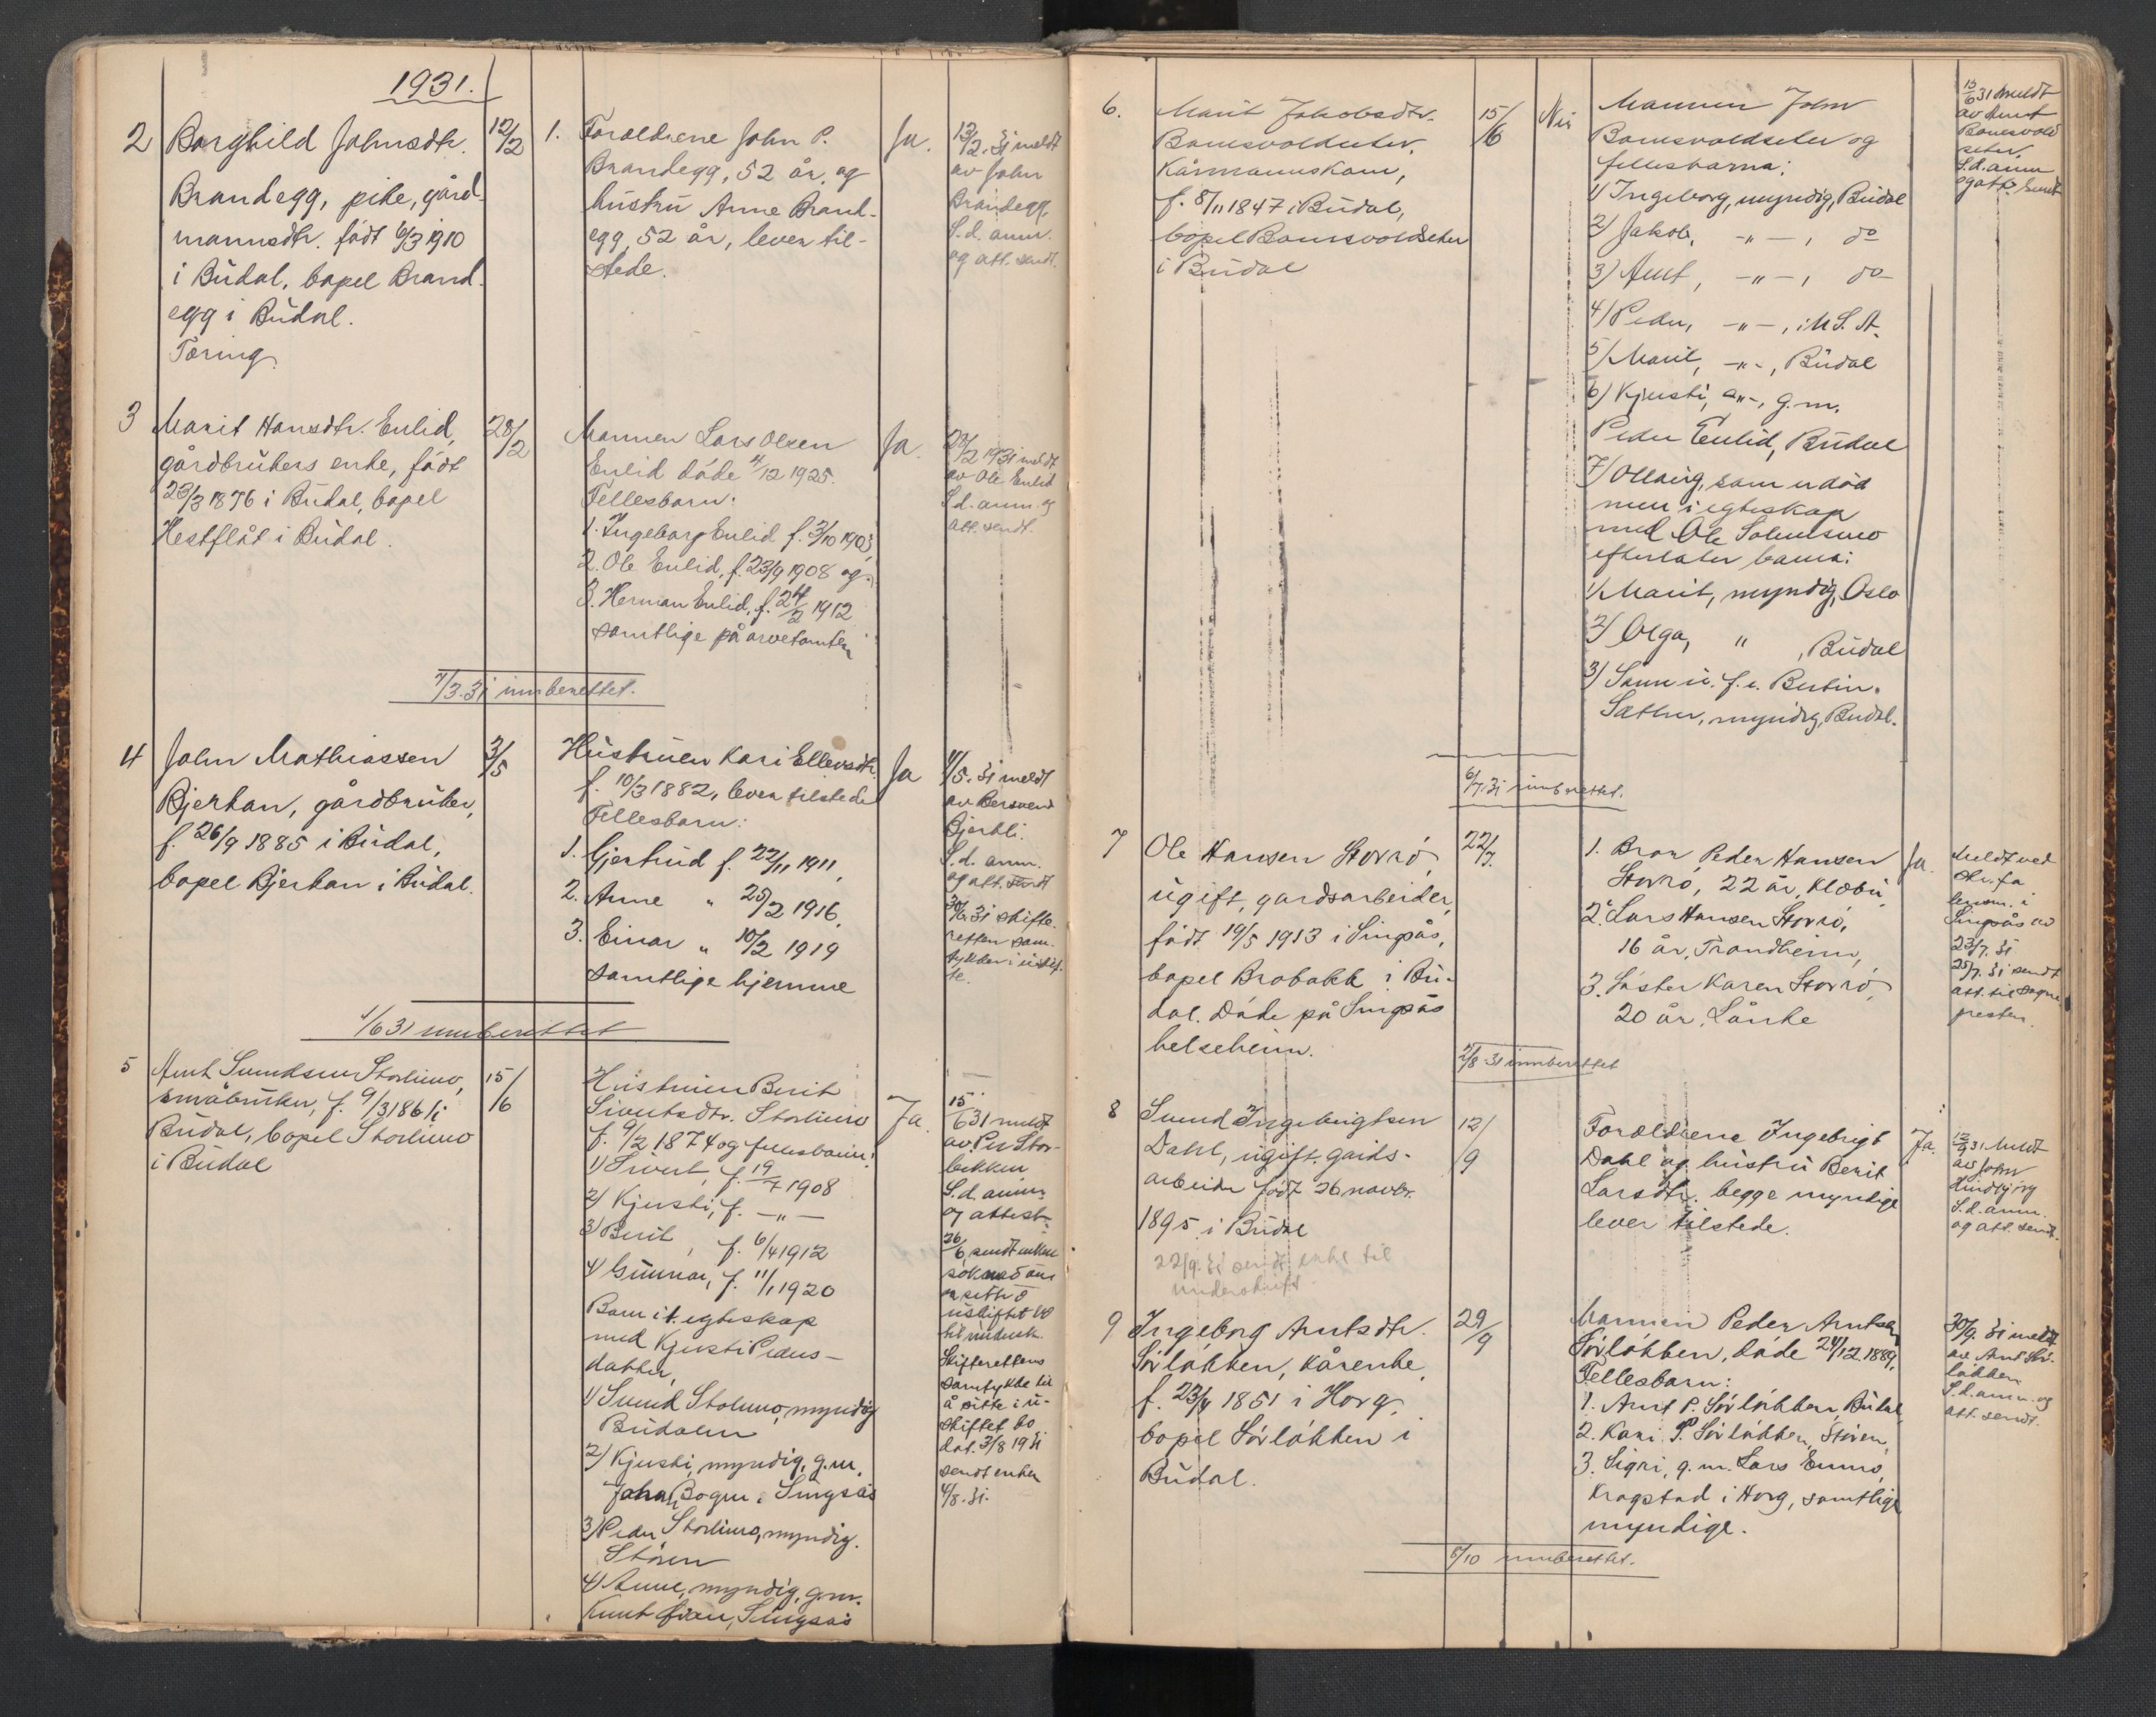 1931.
2 Borghild Johnsdtr.
Brandegg, pike, gård-
mannsdtr. født 6/3 1910
i Budal, bopel Brand-
egg i Budal.
Tæring.
12/2
1. Foreldrene John P.
Brandegg, 52 år, og
hustru Anne Brand-
egg, 52 år, lever til-
stede.
Ja.
13/2. 31 meldt
av John
Brandegg.
S.d. anm.
og att. sendt.
3 Marit Hansdtr. Enlid,
gårdbrukers enke, født
23/3 1876 i Budal, bopel
Hestflåt i Budal.
28/2
Mannen Lars Olsen
Enlid døde 4/12 1925.
Fellesbarn:
1. Ingeborg Enlid f. 3/10 1903,
2. Ole Enlid, f. 23/9 1908 og
3. Herman Enlid, f. 24/2 1912
samtlige på arvetomten
Ja.
28/2 1931 meldt
av Ole Enlid
S.d. anm. og
att. sendt.
7/3.31 innberettet.
4 John Mathiassen
Bjerkan, gårdbruker,
f. 26/9 1885 i Budal,
bopel Bjerkan i Budal.
3/5
Hustruen Kari Ellevsdtr.
f. 10/3 1882, lever tilstede
Fellesbarn:
1. Gjertrud f. 22/11 1911,
2. Anne " 25/2 1916,
3. Einar " 10/2 1919
samtlige hjemme
Ja
4/5. 31 meldt
av Bersvend
Bjerkli.
S.d. anm.
og att. sendt
31 skifte-
retten sam-
tykker i uskif-
te.
1/6 31 innberettet
5 Arnt Storlimo,
småbruker, f. 9/3 1861 i
Budal, bopel Storlimo
i Budal
15/6
Hustruen Berit
Sivertsdtr. Storlimo
f. 9/2 1874 og fellesbarn:
1) Sivert, f. 19/7 1908
2) Kjersti, f. -"-
3) Berit, f. 6/4 1912
4) Gunnar, f. 11/1 1920
Barn i 1. egteskap
med Kjersti Peders-
datter,
1) Svend Storlimo, myndig
Budalen
2) Kjersti, myndig, g.m.
Johan Bogen i Singsås
3) Peder Storlimo, myndig.
Støren
4) Anne, myndig, g.m.
Knut Singsås
Ja.
15/6 31 meldt
av Per Stor-
bekken
S.d. anm.
og attest.
26/6 sendt enken
søknad om
å sitte i
uskiftet bo
til undersk.
Skifterettens
samtykke til
å sitte i u-
skiftet bo
dat. 3/8 1931
sendt enken
4/8. 31.
6. Marit Jakobsdtr.
Bonesvoldseter,
Kårmannskone,
f. 8/11 1847 i Budal,
bopel Bonesvoldseter
i Budal
15/6
Nei
Mannen John
Bonesvoldseter og
fellesbarna:
1) Ingeborg, myndig, Budal
2) Jakob, -"-, do
3) Arnt, -"-, do
4) Peder, -"-, i U.S.A.
5) Marit, -"-, Budal
6) Kjersti, -"-, g.m.
Peder Enlid, Budal
7) Ollaug, som er død
men i egteskap
med Ole Solemsmo
efterlater barna:
1) Marit, myndig, Oslo
2) Olga, " , Budal
3) f. e.
Sæther, myndig, Budal.
15/6 31 meldt
av Arnt
Bonesvold
seter,
S.d. anm
og att. sendt
6/7.31 innberettet.
7 Ole Hansen Storrø,
ugift, gardsarbeider,
født 19/5 1913 i Singsås,
bopel Brobakk i Bu-
dal. Døde på Singsås
helseheim.
22/7.
1. Bror Peder Hansen
Storrø, 22 år, Klæbu,
2. Lars Hansen Storrø,
16 år, Trondheim,
3. Søster Karen Storrø,
20 år, Lånke
Ja.
Meldt ved
skr. fra
lensm. i
Singsås av
23/7. 31
25/7. 31 sendt
att. til sogne
presten.
/8 31 innberettet
8 Svend Ingebrigtsen
Dahl, ugift, gards-
arbeider født 26 novbr.
1895 i Budal
22/9. 31 sendt enke til
underskrift
12/9
Foreldrene Ingebrigt
Dahl og hustru Berit
Larsdtr. begge myndige
lever tilstede.
Ja.
12/9 31 Meldt
av John
S.d. anm.
og att. sendt.
9 Ingeborg Arntsdtr.
Sørløkken, Kårenke,
f. 23/4 1851 i Horg,
bopel Sørløkken i
Budal.
29/9
Mannen Peder Arntsen
Sørløkken, døde 24/12.1889,
Fellesbarn:
1. Arnt P. Sørløkken, Budal,
2. Kari P. Sørløkken, Støren,
3. Sigri, g.m. Lars Enmo,
Krogstad i Horg, samtlige
myndige.
30/9. 31 meldt
av Arnt Sør-
løkken
S.d. anm. og
att. sendt.
5/10 innberettet.